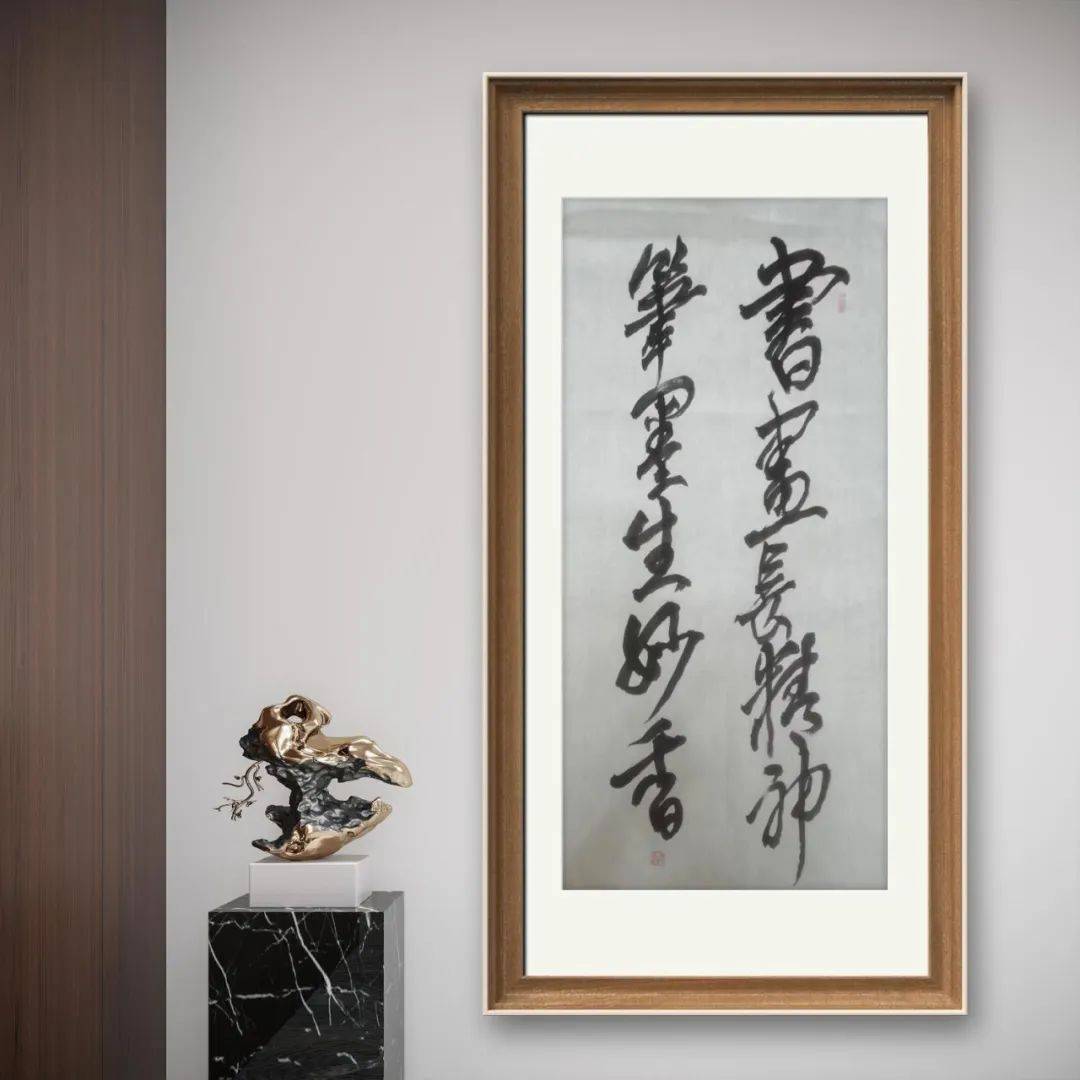 書畫長精神
筆墨生妙香